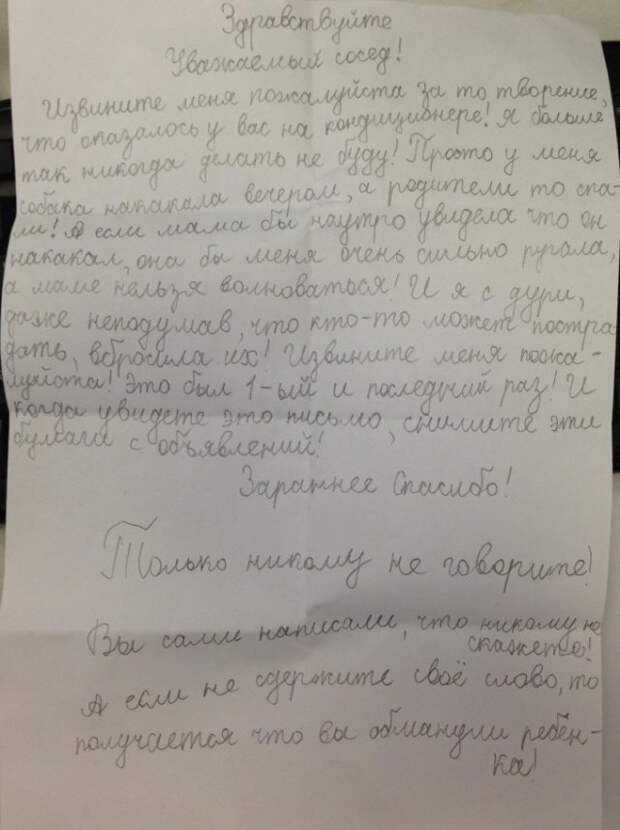 Здравствуйте
Уважаемый сосед!
Извините меня пожалуйста за то творение,
что оказалось у вас на кондиционере! Я больше
так никогда делать не буду! Просто у меня
собака накакала вечером, а родители то спа-
ли! А если мама бы наутро увидела что он
накакал, она бы меня очень сильно ругала,
а маме нельзя волноваться! И я с дури,
даже неподумав, что кто-то может постра
дать, вбросила их! Извините меня пожа-
луйста! Это был 1-ый и последний раз! И
когда увидете это письмо, снимите эти
бумаги с объявлений!
Зараннее Спасибо!
Только никому не говорите!
Вы сами написали, что никому не
скажете!
А если не сдержите своё слово, то
получается что вы обманули ребён-
ка!